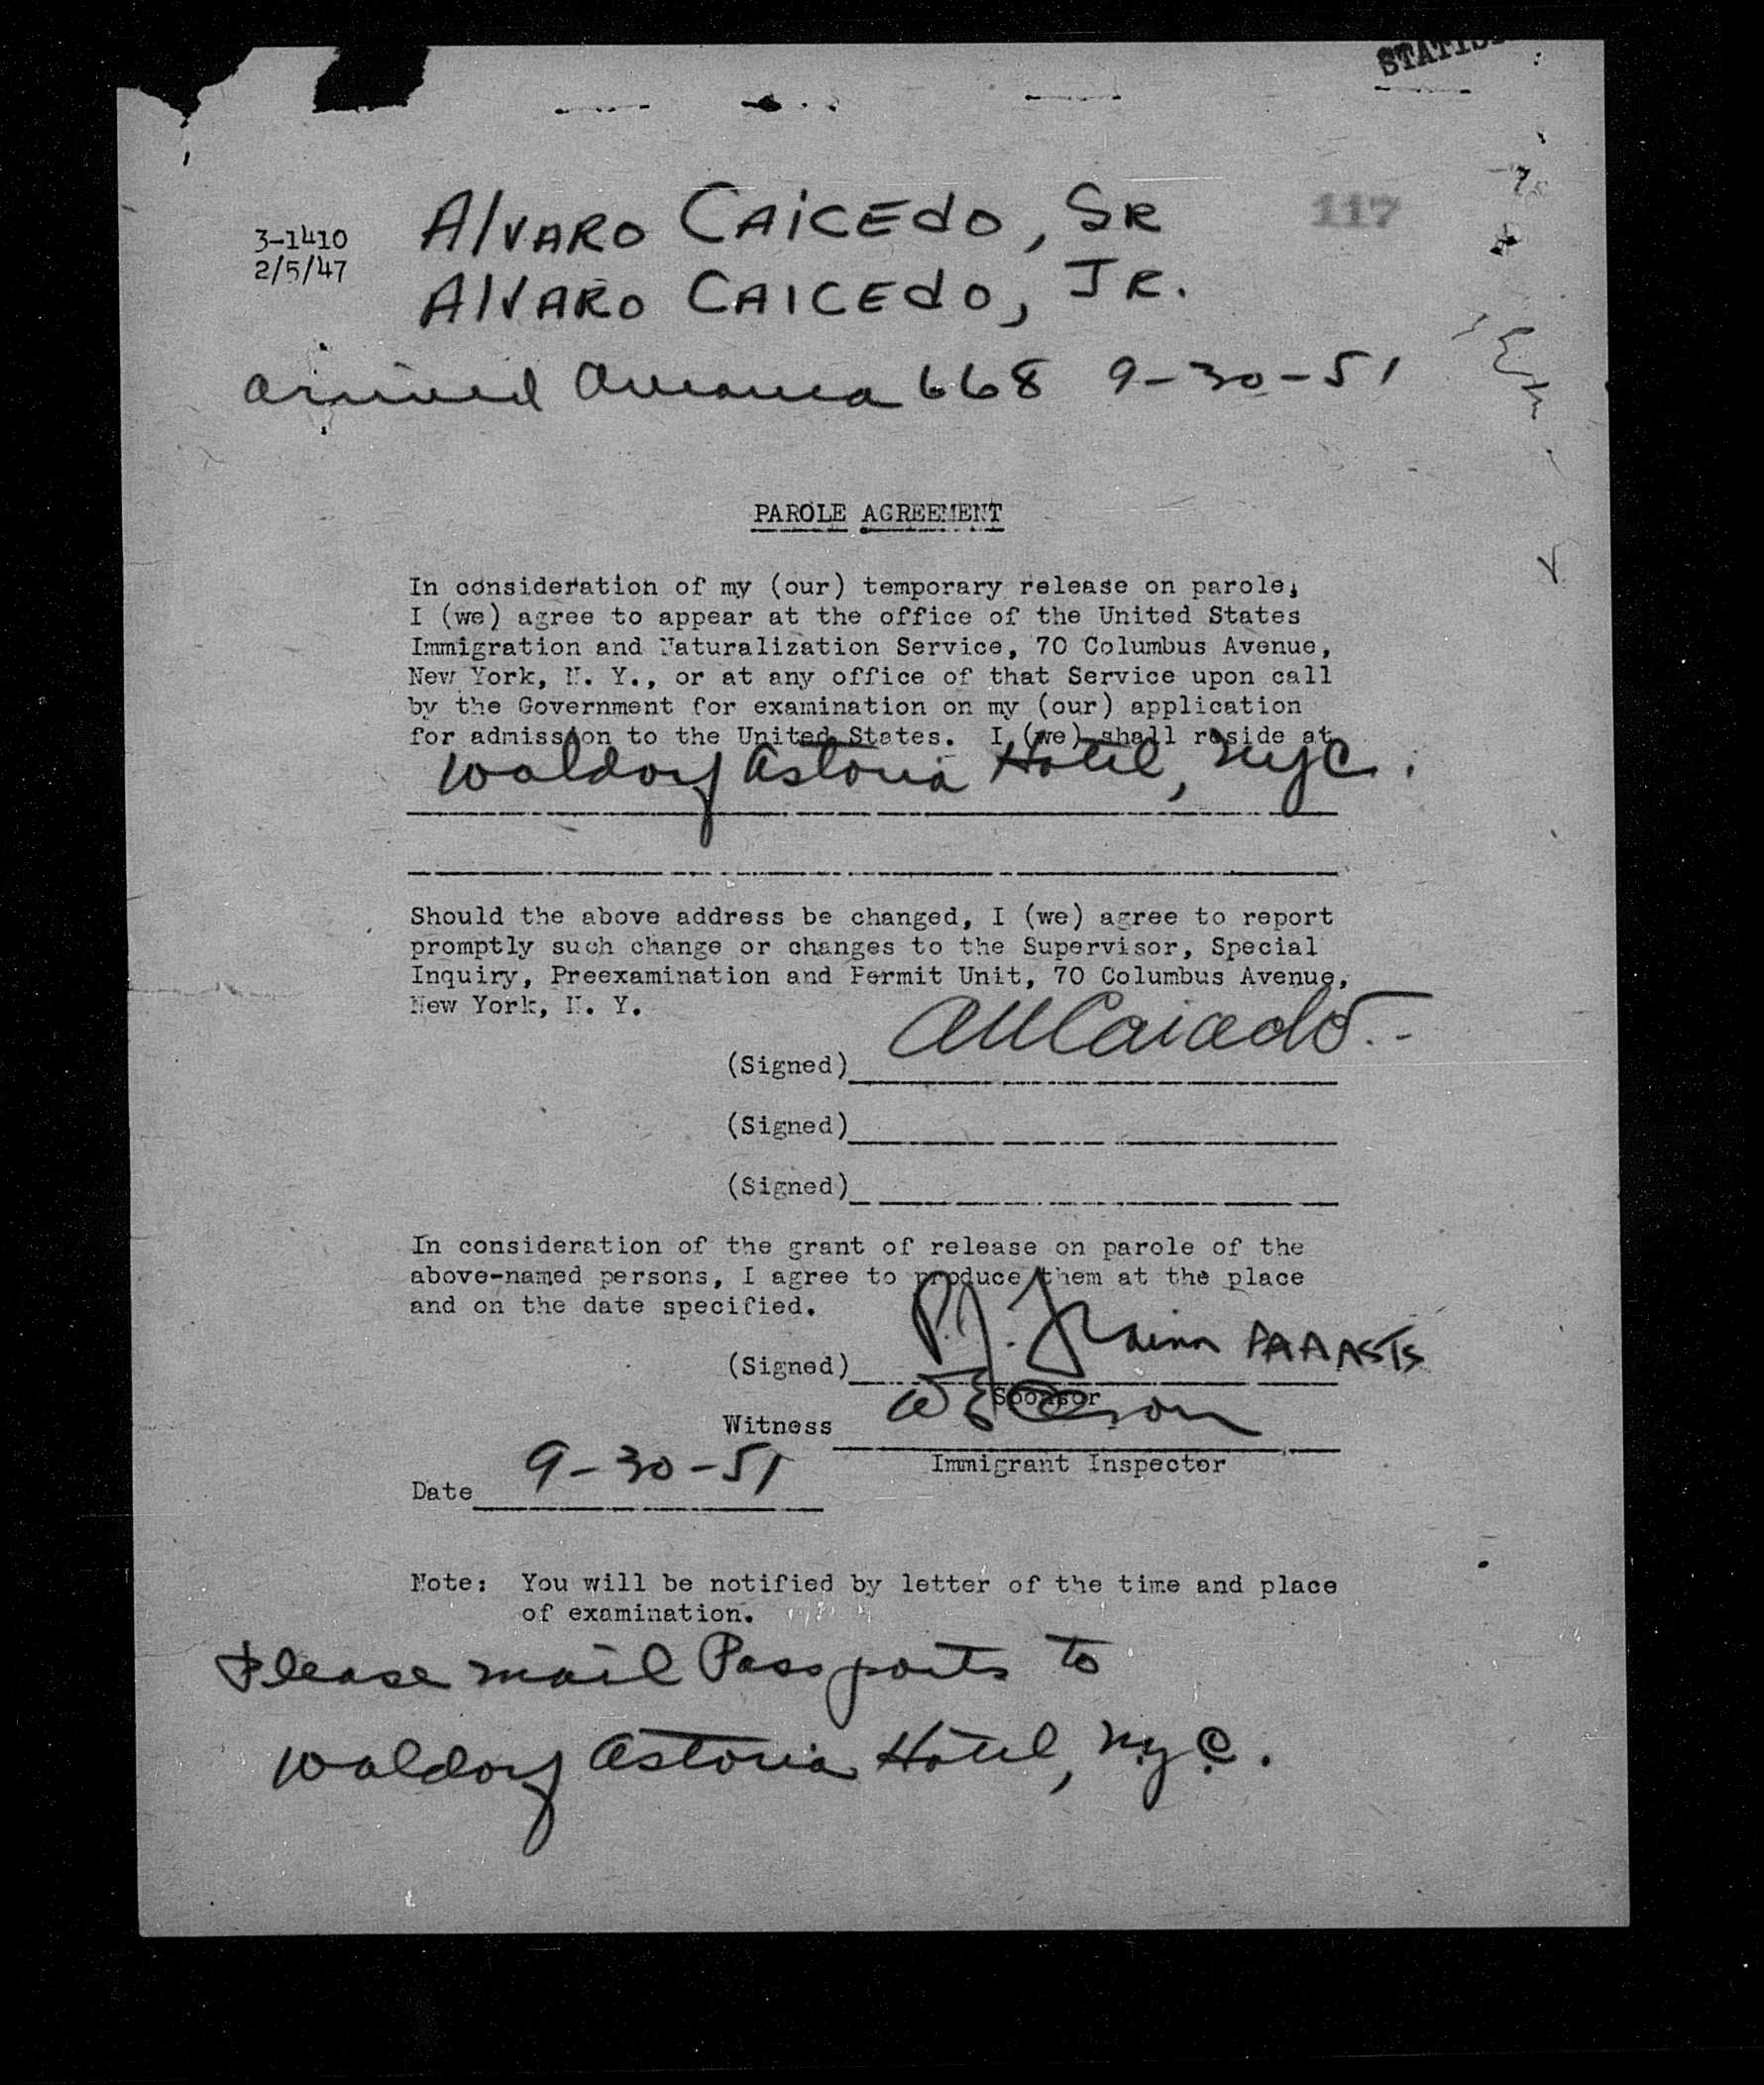 117
3-1410
2/5/47
Alvaro Caicedo, Sr
Alvaro Caicedo, Jr.
arrived Avianca 668 9-30-51
PAROLE AGREEMENT
In consideration of my (our) temporary release on parole,
I (we) agree to appear at the office of the United States
Immigration and Naturalization Service, 70 Columbus Avenue,
New York, N. Y., or at any office of that Service upon call
by the Government for examination on my (our) application
for admission to the United States. I (we) shall reside at
Waldorf Astoria Hotel, NYC.
Should the above address be changed, I (we) agree to report
promptly such change or changes to the Supervisor, Special
Inquiry, Preexamination and Permit Unit, 70 Columbus Avenue,
New York, N. Y.
(Signed) Caicedo
(Signed)
(Signed)
In consideration of the grant of release on parole of the
above-named persons, I agree to produce them at the place
and on the date specified.
(Signed) P.J.
Sponsor
Witness
Immigrant Inspector
Date 9-30-51
Note: You will be notified by letter of the time and place
of examination.
Please mail Passports to
Waldorf Astoria Hotel, NYC.